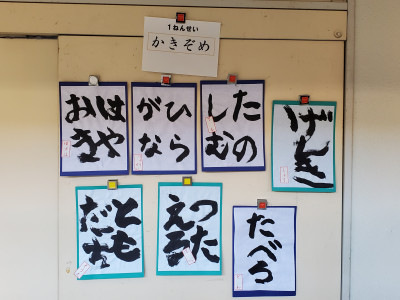 1ねんせい
かきぞめ
はや
おき
ひら
がな
たの
しむ
げんき
とも
だち
つた
える
たべる